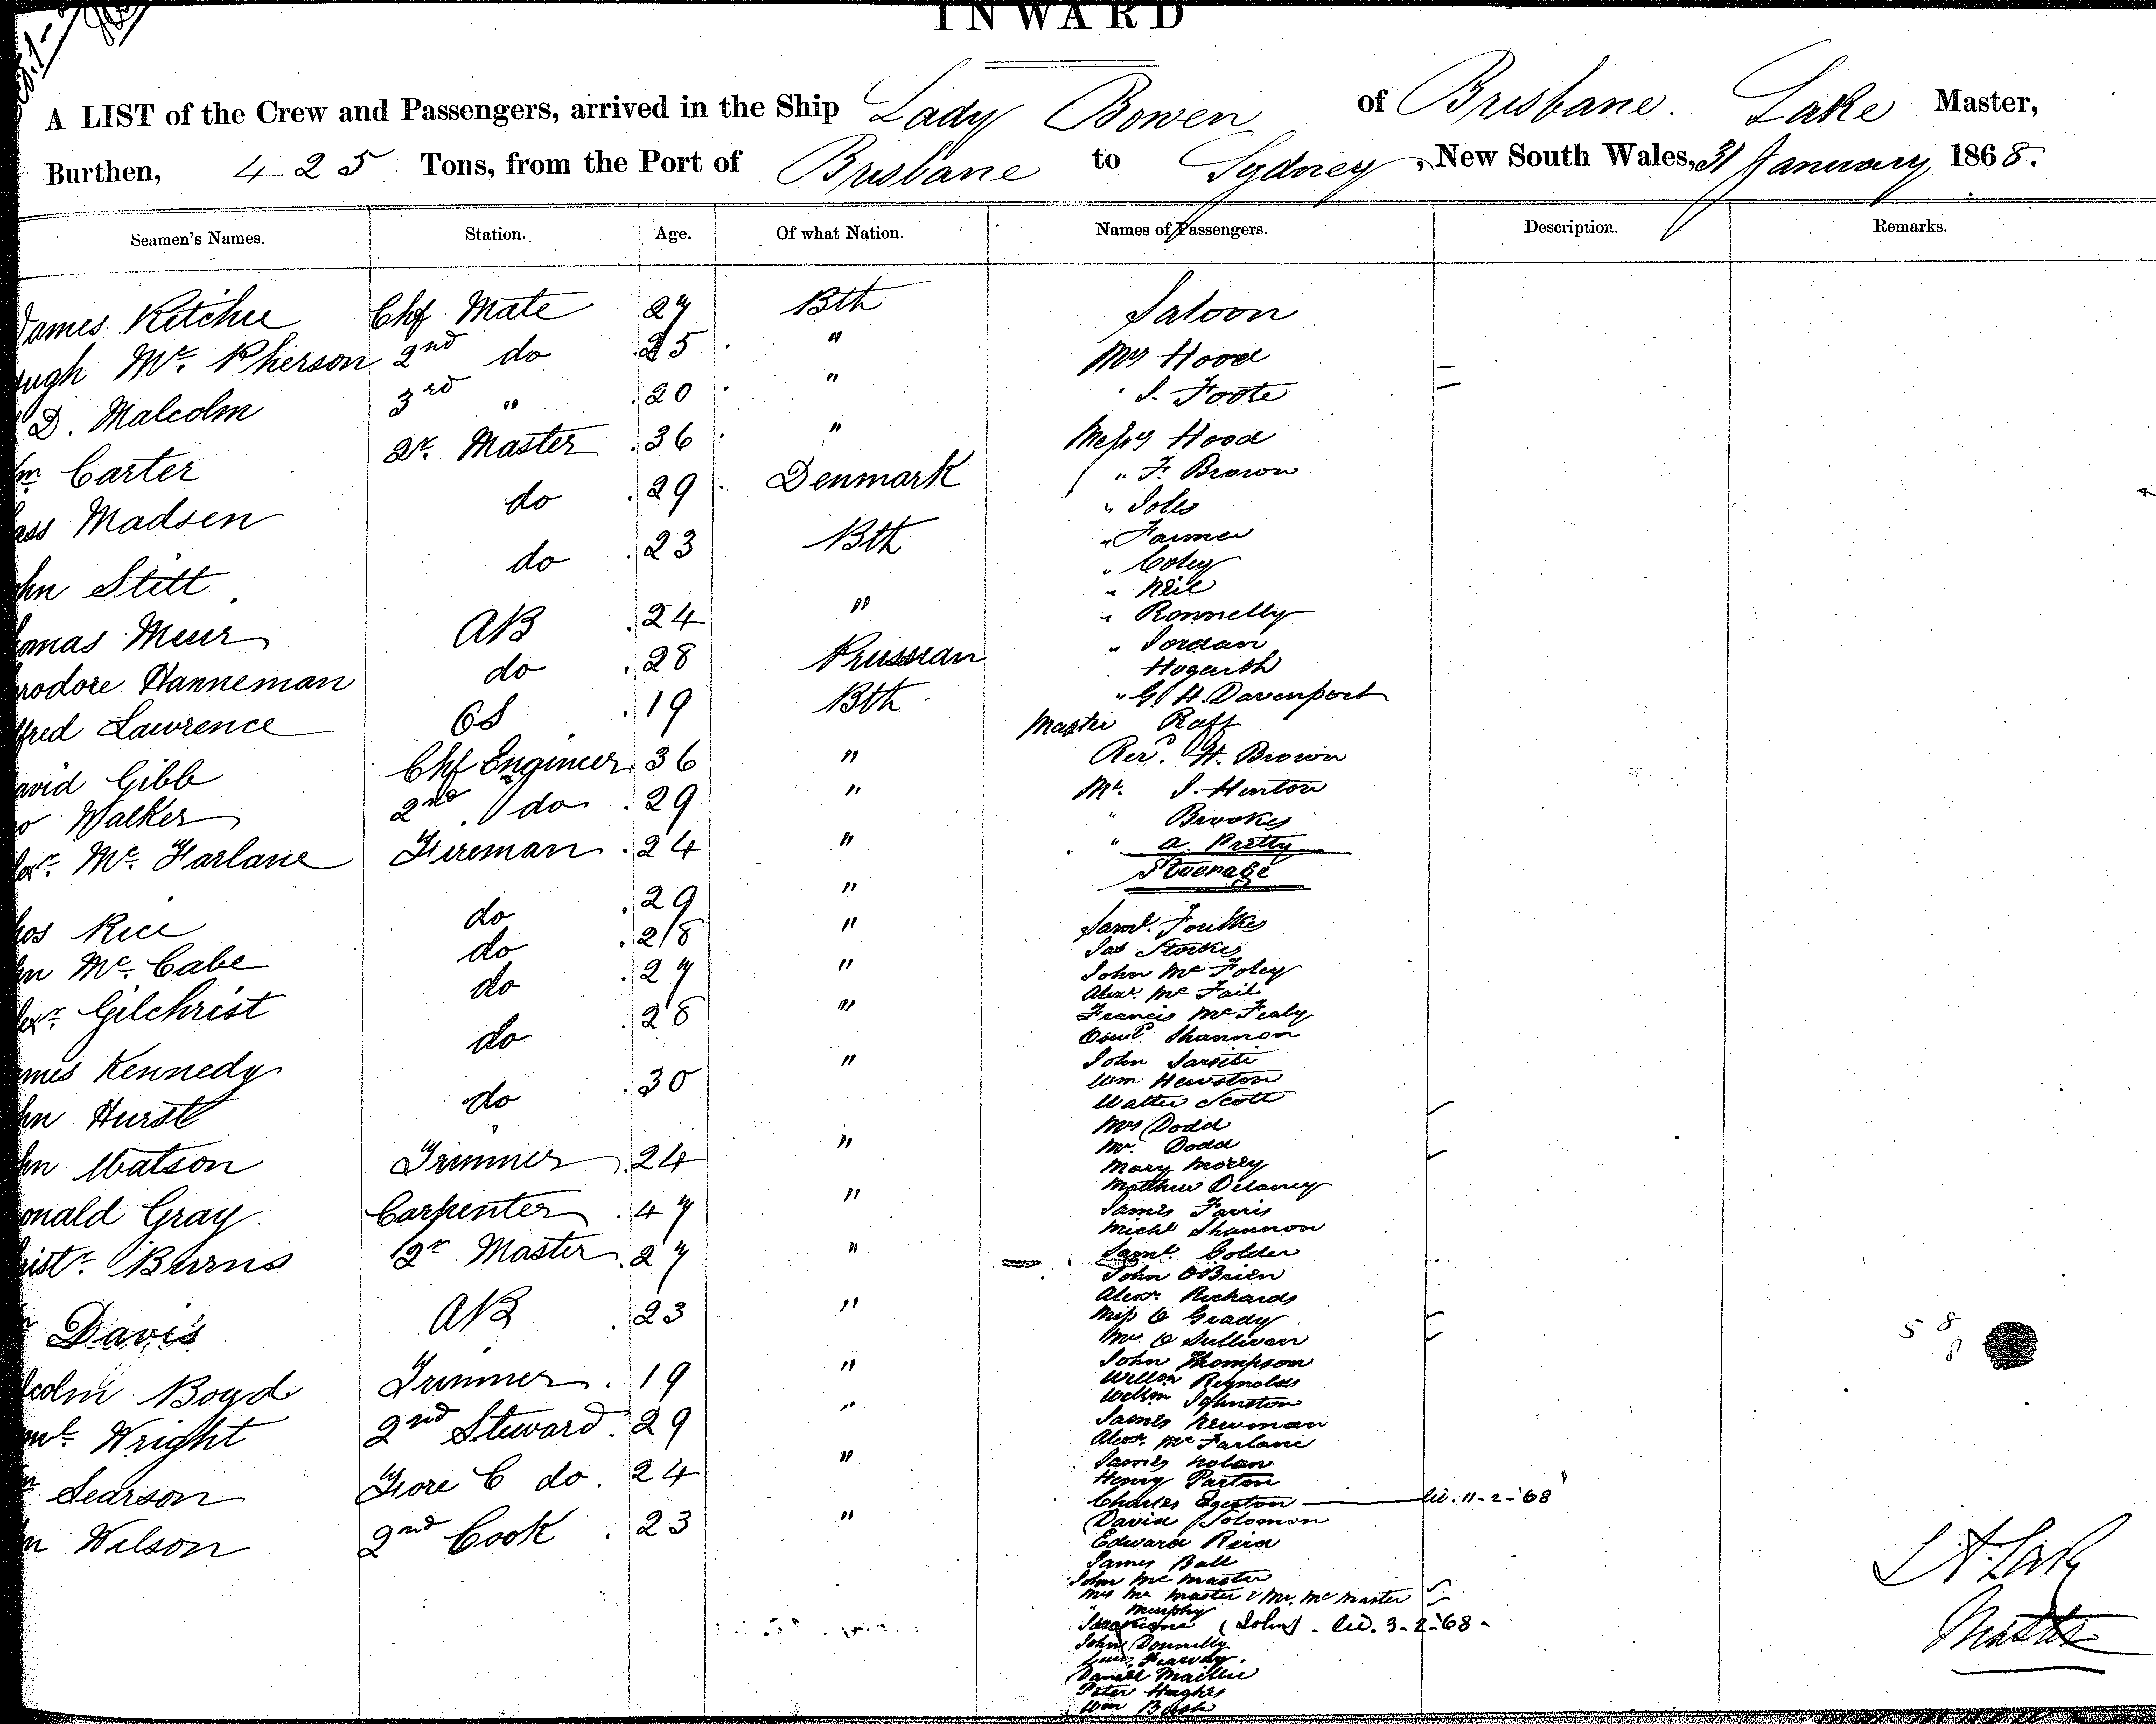 INWARD
A LIST of the Crew and Passengers, arrived in the Ship Lady Bowen of Brisbane. Lake Master,
Burthen, 425 Tons, from the Port of Brisbane to Sydney, New South Wales, 31 January 1868.
Seamen's Names. Station. Age. Of what Nation. Names of Passengers. Description. Remarks.
James Ritchie Chf Mate 27 Bth
ugh Mc Pherson 2nd do 25 "
D. Malcolm 3rd " 20 "
m Carter Qr. Master 36 "
ass Madsen do 29 Denmark
hn Stitt do 23 Bth
omas Muir AB 24 "
odore Hanneman do 28 Prussian
fred Lawrence OS 19 Bth
avid Gibb Chf Engineer 36 "
Walker 2nd do 29 "
lexr. Mc Farlane Fireman 24 "
hos Rice do 29 "
hn Mc Cabe do 28 "
lexr. Gilchrist do 27 "
mes Kennedy do 28 "
hn Hurst do 30 "
hn Watson Trimmer 24 "
onald Gray Carpenter 47 "
ristr. Burns Qr Master 27 "
Davis AB 23 "
lcolm Boyd Trimmer 19 "
ml. Wright 2nd Steward 29 "
Searson Fore C do. 24 "
n Wilson 2nd Cook 23 "
Saloon
Mrs Hood
" S. Foote
Messrs Hood
" F. Brown
"
" Farmer
" Coley
" Neil
" Ronnelly
" Jordan
Hogarth
" G H. Davenport
Master Raff
Revd. W. Brown
Mr. J. Hinton
" Brookes
" A. Pretty
Steerage
Saml. Foulkes
Jas
John Mc Foley
Alexr. Mc Fail
Francis Mc Fealy
Shannon
John
Wm Hewston
Walter Scott
Mrs Dodd
Mr. Dodd
Mary Morey
Matthew Delaney
James Farris
Michl Shannon
Saml. Golder
John OBrien
Alexr Richards
Miss O Grady
Mr. O Sullivan
John Thompson
Reynolds
Johnston
James Newman
Alexr. Mc Farlane
James Nolan
Henry Parton
Charles Egerton 11-2-'68
David Solomon
Edward Reid
James Ball
John Mc Master
Mrs Mc Master & Mr. Mc Master
" Murphy
(John) 3-2-'68
John Donnelly
Daniel
Peter Hughes
Wm
58
Lake
Master